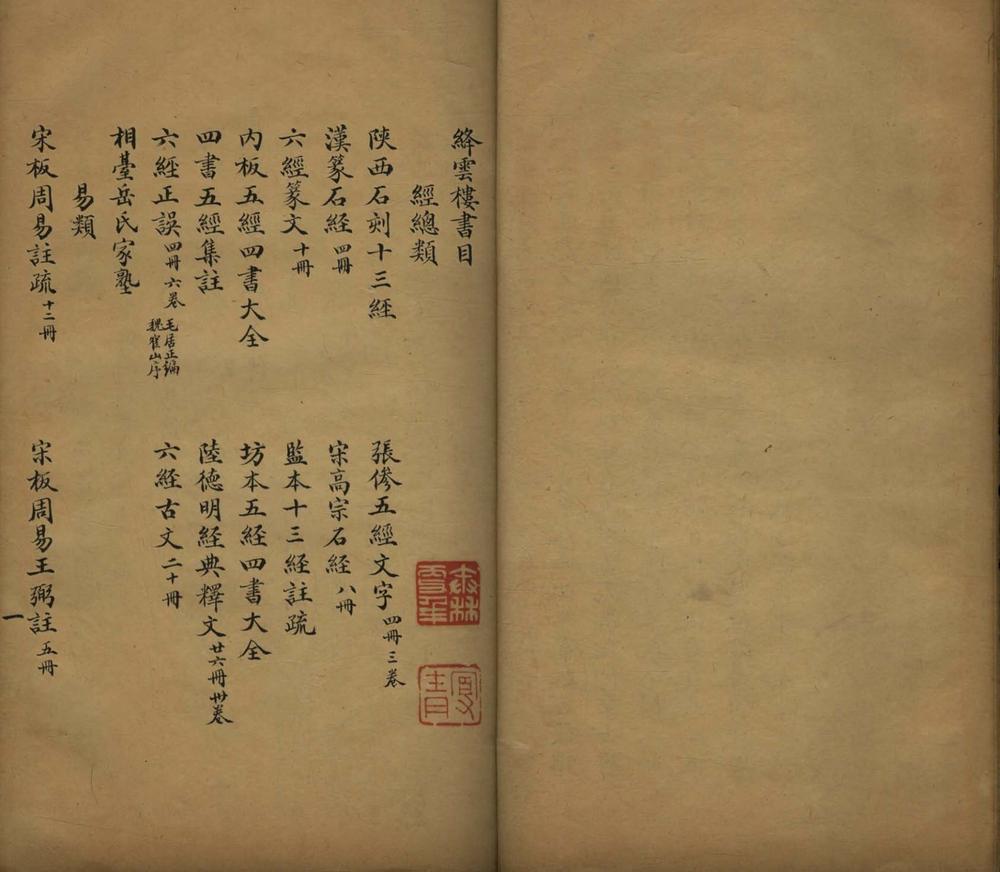 絳雲樓書目
經總類
陝西石刻十三經
張俢五經文字 四冊 三卷
漢篆石経 四冊
宋高宗石経 八冊
六經篆文 十冊
監本十三経註疏
内板五經四書大全
坊本五経四書大全
四書五經集註
陸德明経典釋文 廿六冊 卅卷
六經正誤 四冊 六卷 毛居正編 魏崔山序
六経古文 二十冊
相臺岳氏家塾
易類
宋板周易註疏 十二冊
宋板周易王弼註 五冊
一